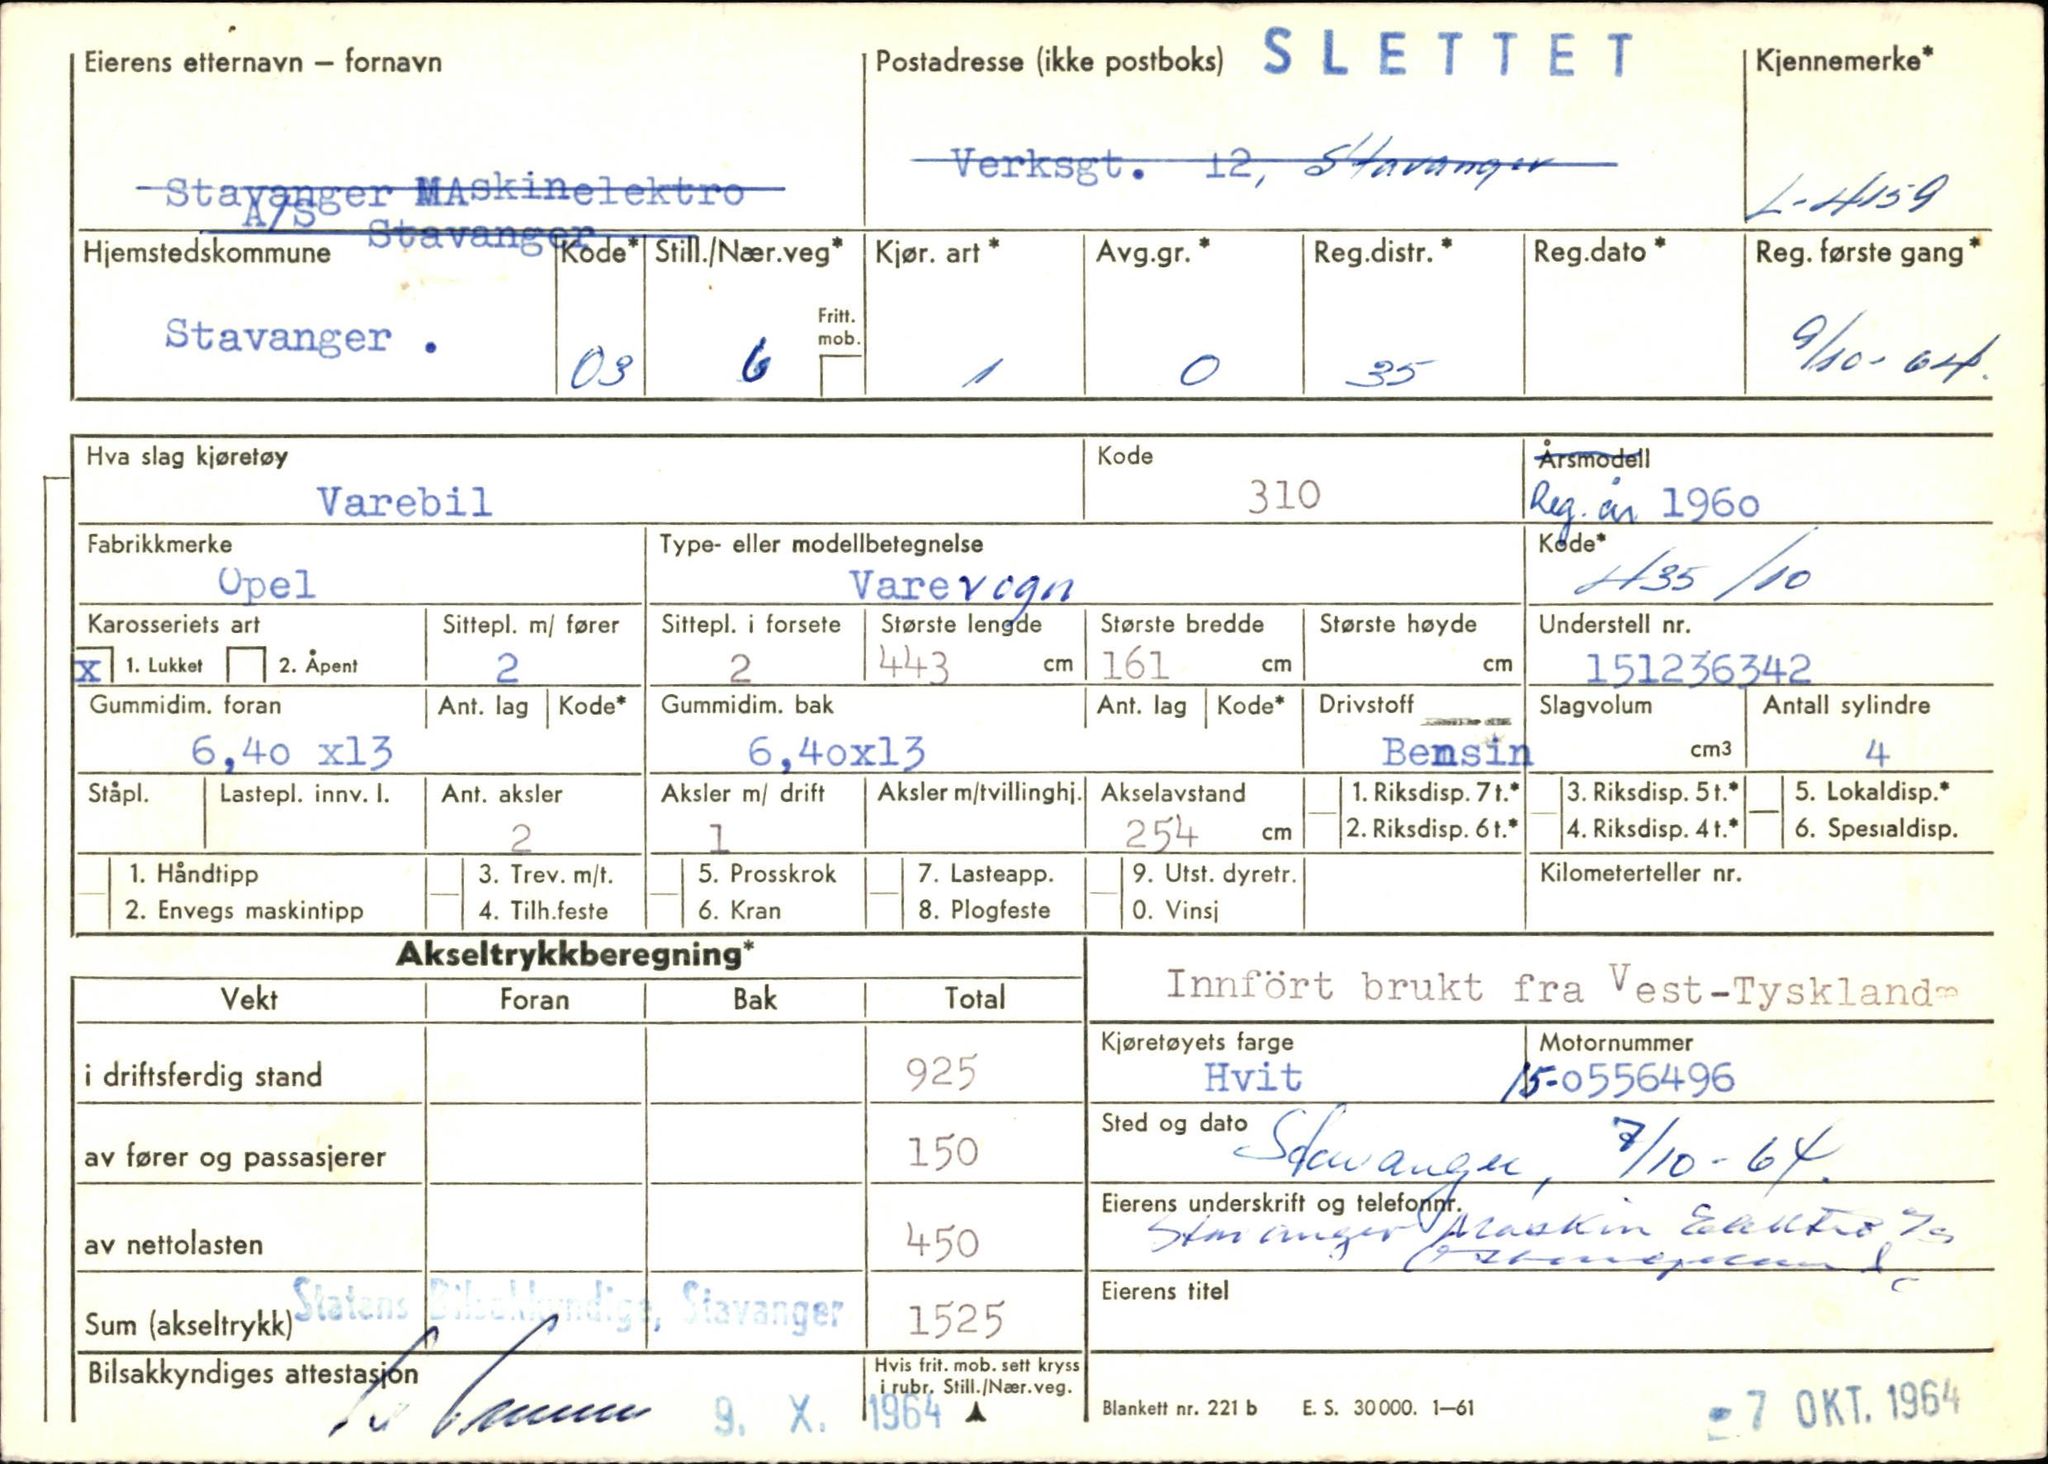 Eierens etternavn – fornavn Postadresse (ikke postboks) SLETTET Kjennemerke*
Verksgt. 12, Stavanger
Stavanger MAskinelektro
A/S Stavanger L-4159
Hjemstedskommune Kode* Still./Nær.veg* Kjør. art* Avg.gr.* Reg.distr.* Reg.dato* Reg. første gang*
Fritt.
mob.
Stavanger . 03 6 1 0 35 9/10-64.
Hva slag kjøretøy Kode Årsmodell
Varebil 310 Reg. år 1960
Fabrikkmerke Type- eller modellbetegnelse Kode*
Opel Varevogn 435/10
Karosseriets art Sittepl. m/ fører Sittepl. i forsete Største lengde Største bredde Største høyde Understell nr.
x 1. Lukket 2. Åpent 2 2 443 cm 161 cm cm 151236342
Gummidim. foran Ant. lag Kode* Gummidim. bak Ant. lag Kode* Drivstoff Slagvolum Antall sylindre
6,40 x13 6,40x13 Bensin cm3 4
Ståpl. Lastepl. innv. l. Ant. aksler Aksler m/ drift Aksler m/tvillinghj. Akselavstand 1. Riksdisp. 7 t.* 3. Riksdisp. 5 t.* 5. Lokaldisp.*
2 1 254 cm 2. Riksdisp. 6 t.* 4. Riksdisp. 4 t.* 6. Spesialdisp.
1. Håndtipp 3. Trev. m/t. 5. Prosskrok 7. Lasteapp. 9. Utst. dyretr. Kilometerteller nr.
2. Envegs maskintipp 4. Tilh.feste 6. Kran 8. Plogfeste 0. Vinsj
Akseltrykkberegning*
Innfört brukt fra Vest-Tyskland
Vekt Foran Bak Total
Kjøretøyets farge Motornummer
i driftsferdig stand 925 Hvit 15-0556496
Sted og dato
Stavanger, 7/10-64.
av fører og passasjerer 150
Eierens underskrift og telefonnr.
Stavanger Maskin Elektro A/S
av nettolasten 450
Eierens titel
Statens Bilsakkyndige, Stavanger
Sum (akseltrykk) 1525
Bilsakkyndiges attestasjon Hvis frit. mob. sett kryss
i rubr. Still./Nær.veg.
9. X. 1964 Blankett nr. 221 b E. S. 30 000. 1–61 -7 OKT. 1964